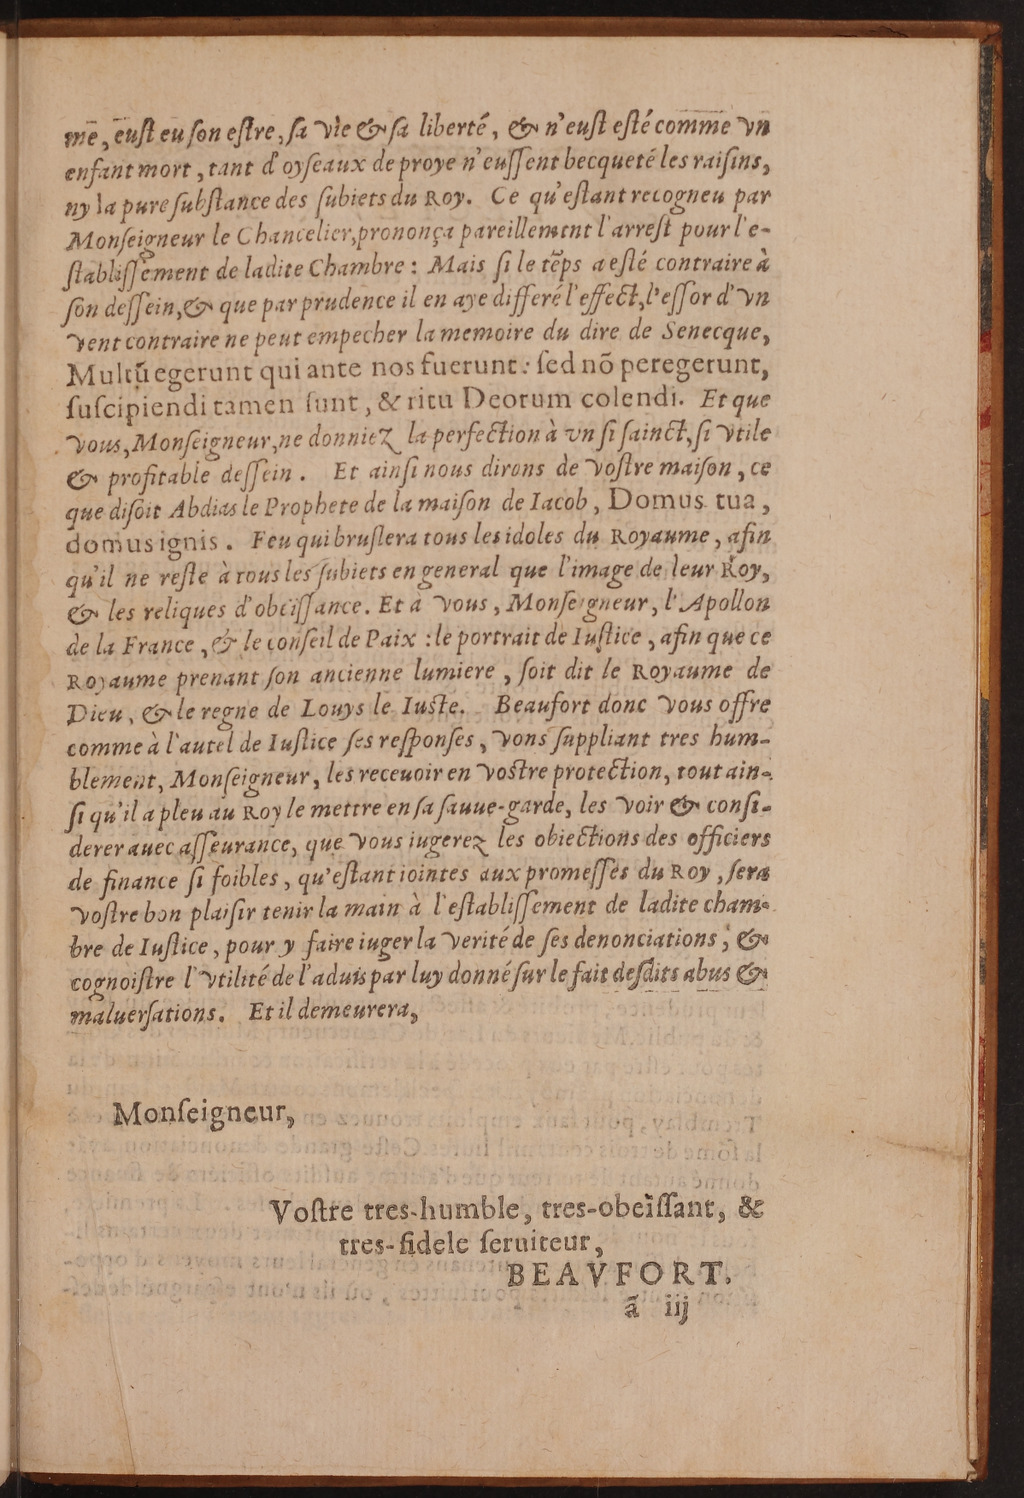 mē, euſt eu ſon eſtre, ſa vie & ſa liberté, & n'euſt eſté comme vn
enfant mort, tant d'oyſeaux de proye n'euſſent becqueté les raiſins,
ny la pure ſubſtance des ſubiets du Roy. Ce qu'eſtant recogneu par
Monſeigneur le Chancelier, prononça pareillement l'arreſt pour l'e-
ſtabliſſement de ladite Chambre: Mais ſi le tēps a eſté contraire à
ſon deſſein, & que par prudence il en aye differé l'effect, l'eſſor d'vn
vent contraire ne peut empecher la memoire du dire de Senecque,
Multũ egerunt qui ante nos fuerunt: ſed nõ peregerunt,
ſuſcipiendi tamen ſunt, & ritu Deorum colendi. Et que
vous, Monſeigneur, ne donniez la perfection à vn ſi ſainct, ſi vtile
& profitable deſſein. Et ainſi nous dirons de voſtre maiſon, ce
que diſoit Abdias le Prophete de la maiſon de Iacob, Domus tua,
domus ignis. Feu qui bruſlera tous les idoles du Royaume, afin
qu'il ne reſte à tous les ſubiets en general que l'image de leur Roy,
& les reliques d'obeïſſance. Et à vous, Monſeigneur, l'Apollon
de la France, & le conſeil de Paix: le portrait de Iuſtice, afin que ce
Royaume prenant ſon ancienne lumiere, ſoit dit le Royaume de
Dieu, & le regne de Louys le Iuſte. Beaufort donc vous offre
comme à l'autel de Iuſtice ſes reſponſes, vons ſuppliant tres hum-
blement, Monſeigneur, les receuoir en voſtre protection, tout ain-
ſi qu'il a pleu au Roy le mettre en ſa ſauue-garde, les voir & conſi-
derer auec aſſeurance, que vous iugerez les obiections des officiers
de finance ſi foibles, qu'eſtant iointes aux promeſſes du Roy, ſera
voſtre bon plaiſir tenir la main à l'eſtabliſſement de ladite cham-
bre de Iuſtice, pour y faire iuger la verité de ſes denonciations, &
cognoiſtre l'vtilité de l'aduis par luy donné ſur le fait deſdits abus &
maluerſations. Et il demeurera,
Monſeigneur,
Voſtre tres-humble, tres-obeïſſant, &
tres-fidele ſeruiteur,
BEAVFORT.
ã iij